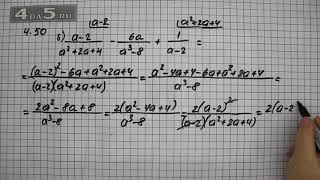 4 ДА 5.RU
a-2 a²+2a+4
4.50 б) a-2/a²+2a+4 - 6a/a³-8 + 1/a-2 =
= (a-2)²-6a+a²+2a+4/(a-2)(a²+2a+4) = a²-4a+4-6a+a²+2a+4/a³-8 =
= 2a²-8a+8/a³-8 = 2(a²-4a+4)/a³-8 = 2(a-2)²/(a-2)(a²+2a+4) = 2(a-2